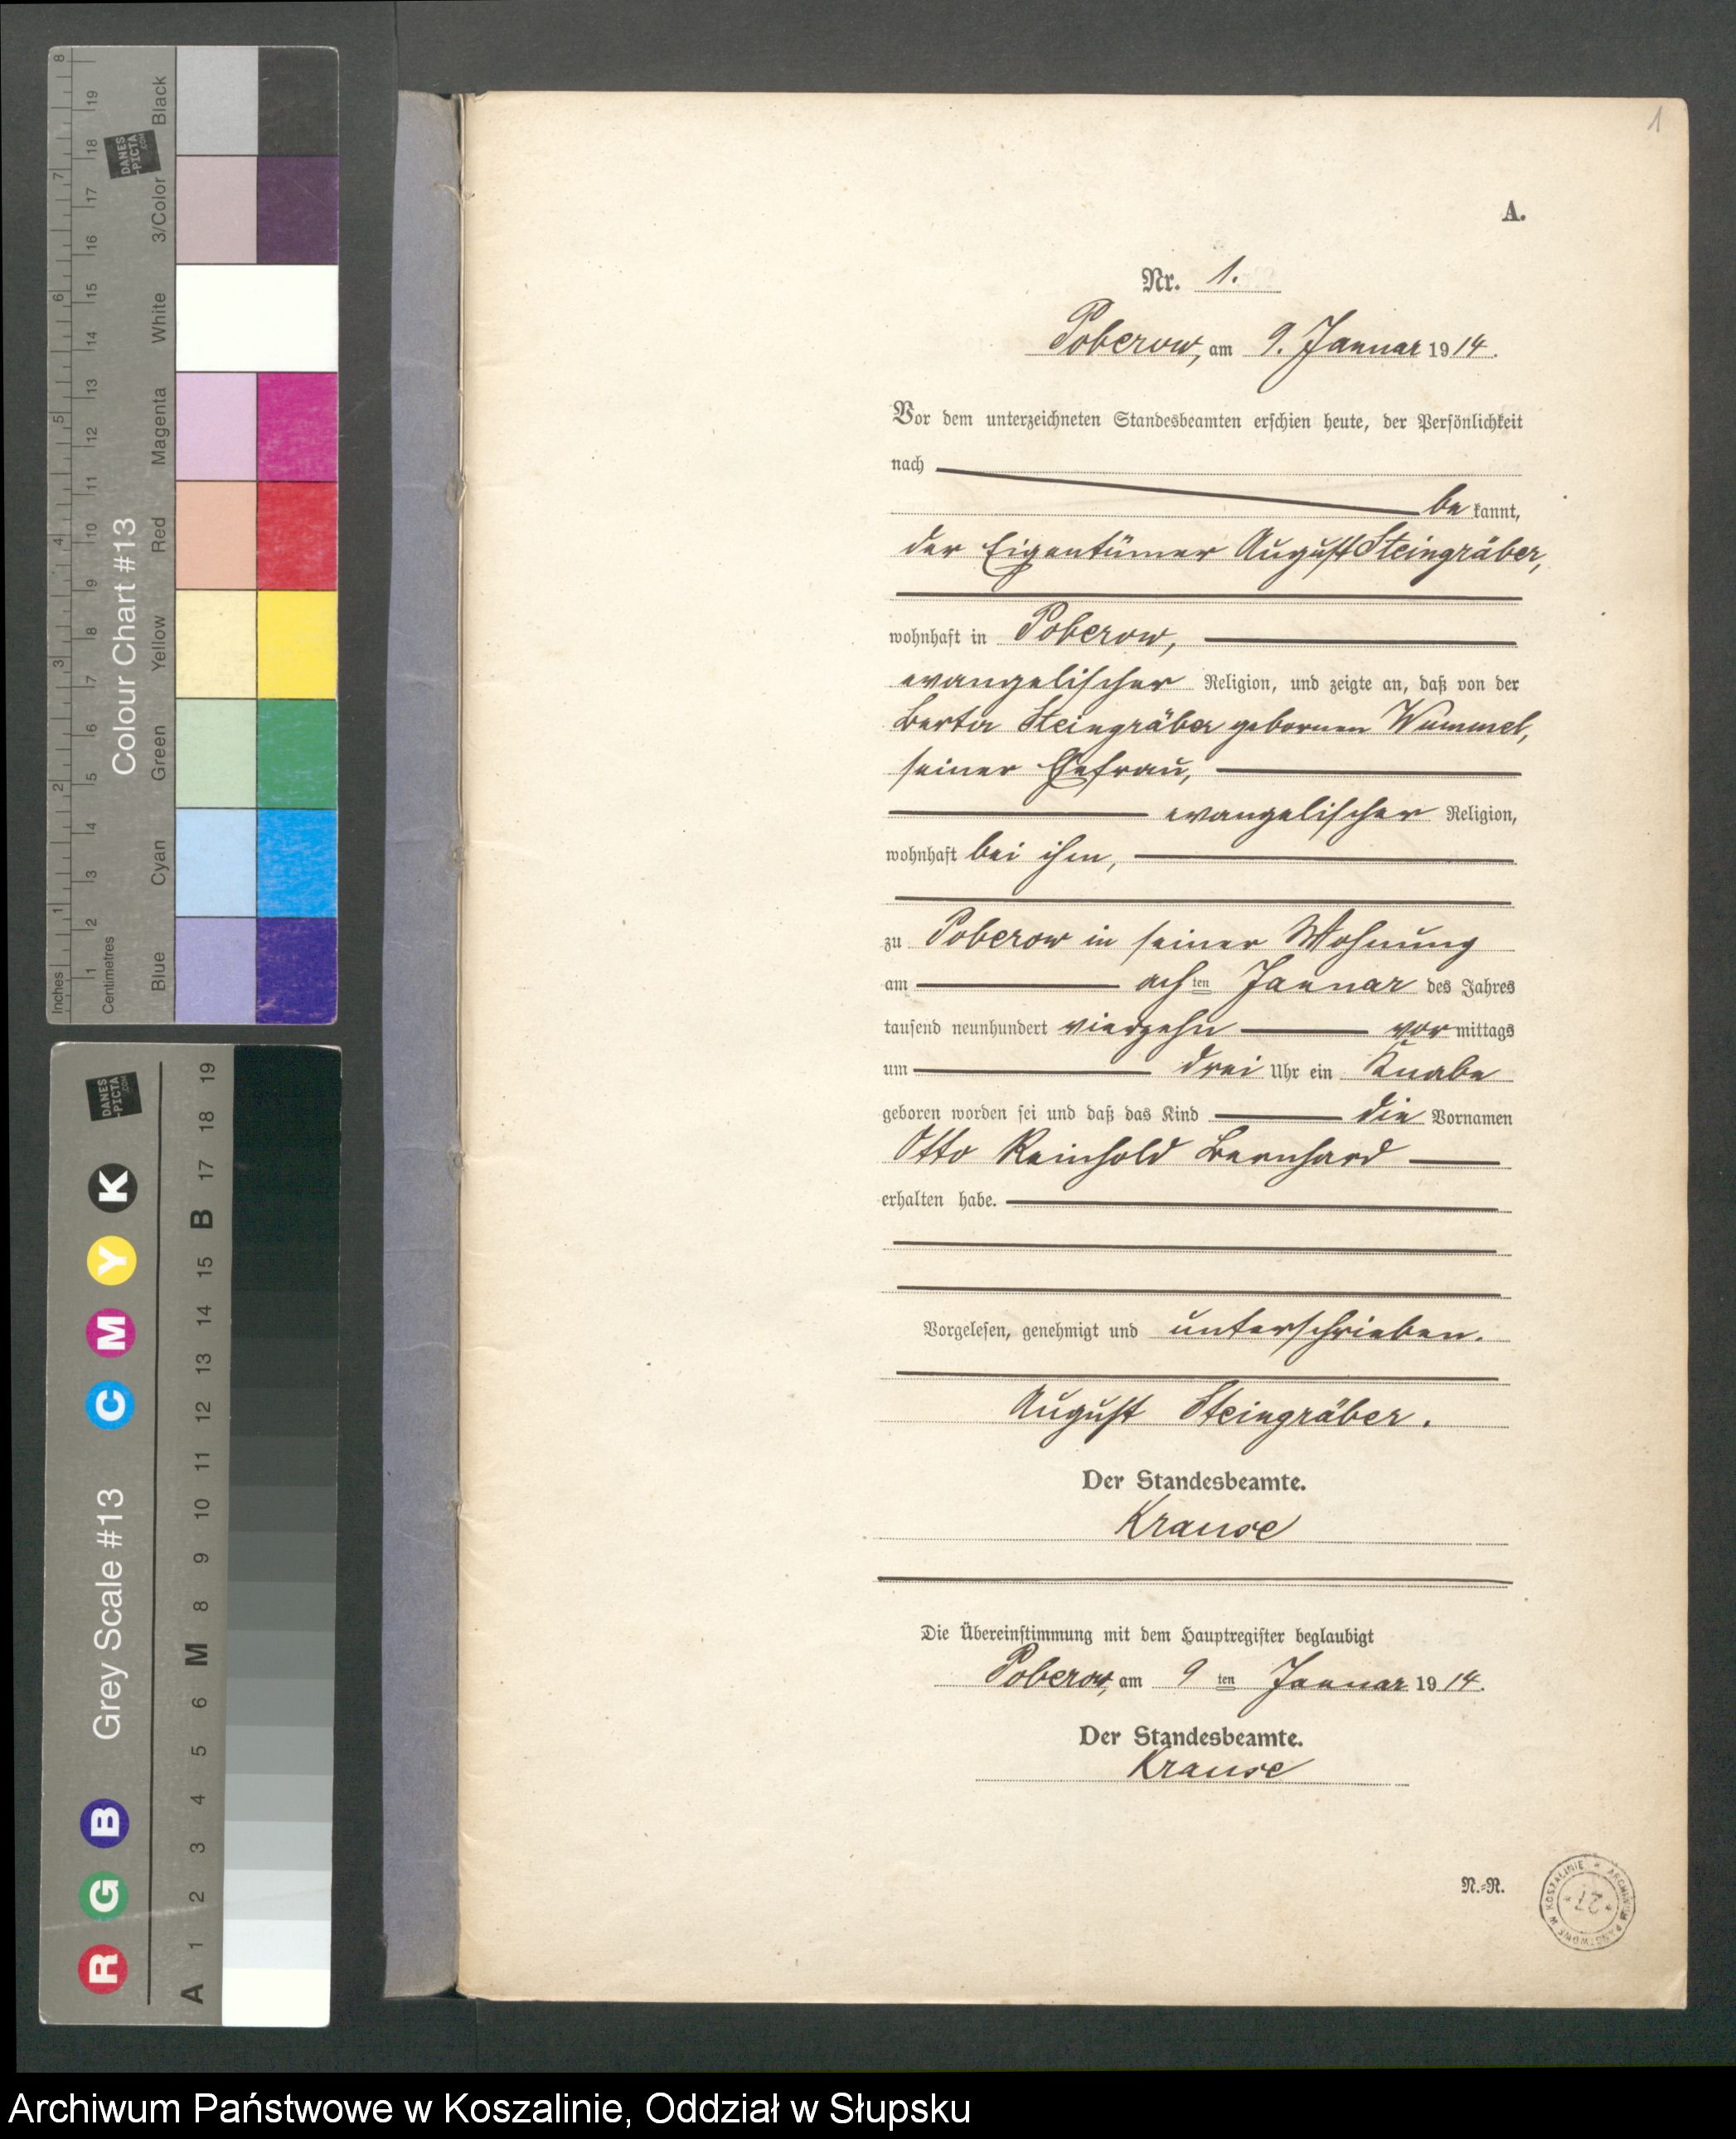 1
A.
Nr. 1.
Poberow, am 9. Januar 1914.
Vor dem unterzeichneten Standesbeamten erschien heute, der Persönlichkeit
nach
bekannt,
der Eigentümer August Steingräber,
wohnhaft in Poberow,
evangelischer Religion, und zeigte an, daß von der
Berta Steingräber gebornen Wummel,
seiner Ehefrau,
evangelischer Religion,
wohnhaft bei ihm,
zu Poberow in seiner Wohnung
am achten Januar des Jahres
tausend neunhundert vierzehn vormittags
um drei Uhr ein Knabe
geboren worden sei und daß das Kind die Vornamen
Otto Reinhold Bernhard
erhalten habe.
Vorgelesen, genehmigt und unterschrieben.
August Steingräber.
Der Standesbeamte.
Krause
Die Übereinstimmung mit dem Hauptregister beglaubigt
Poberow, am 9ten Januar 1914.
Der Standesbeamte.
Krause
N.=R.
ARCHIWUM PAŃSTWOWE W KOSZALINIE
* 27 *
Colour Chart #13
Black
3/Color
White
Magenta
Red
Yellow
Green
Cyan
Blue
Inches 1 2 3 4 5 6 7 8
Centimetres 1 2 3 4 5 6 7 8 9 10 11 12 13 14 15 16 17 18 19
DANES
-PICTA
.COM
Grey Scale #13
R G B C M Y K
A 1 2 3 4 5 6 M 8 9 10 11 12 13 14 15 B 17 18 19
DANES
-PICTA
.COM
Archiwum Państwowe w Koszalinie, Oddział w Słupsku